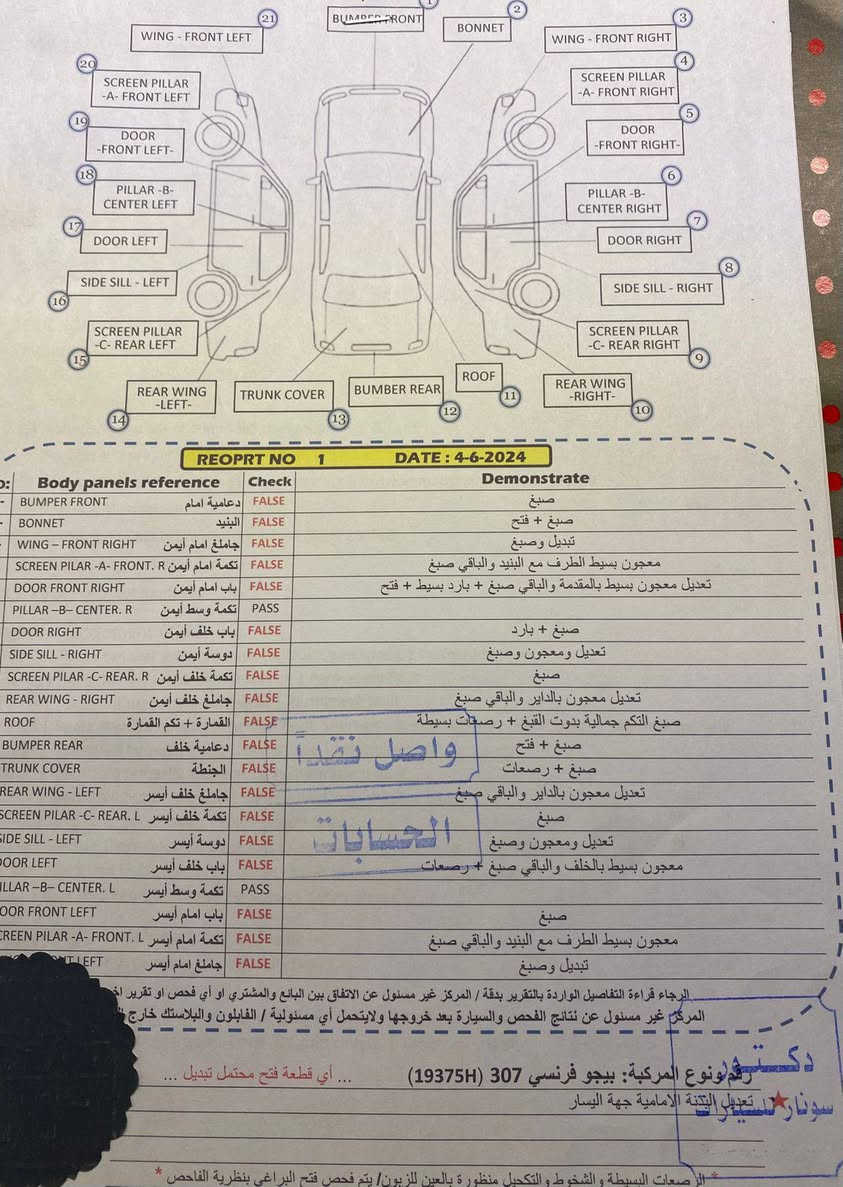 1
BUMBER FRONT
2
BONNET
21
WING - FRONT LEFT
3
WING - FRONT RIGHT
20
SCREEN PILLAR
-A- FRONT LEFT
4
SCREEN PILLAR
-A- FRONT RIGHT
19
DOOR
-FRONT LEFT-
5
DOOR
-FRONT RIGHT-
18
PILLAR -B-
CENTER LEFT
6
PILLAR -B-
CENTER RIGHT
17
DOOR LEFT
7
DOOR RIGHT
16
SIDE SILL - LEFT
8
SIDE SILL - RIGHT
15
SCREEN PILLAR
-C- REAR LEFT
9
SCREEN PILLAR
-C- REAR RIGHT
14
REAR WING
-LEFT-
13
TRUNK COVER
12
BUMBER REAR
11
ROOF
10
REAR WING
-RIGHT-
REOPRT NO 1 DATE : 4-6-2024
O: Body panels reference Check Demonstrate
BUMPER FRONT دعامية امام FALSE صبغ
BONNET البنيد FALSE صبغ + فتح
WING – FRONT RIGHT جاملغ امام أيمن FALSE تبديل وصبغ
SCREEN PILAR -A- FRONT. R تكمة امام أيمن FALSE معجون بسيط الطرف مع البنيد والباقي صبغ
DOOR FRONT RIGHT باب امام أيمن FALSE تعديل معجون بسيط بالمقدمة والباقي صبغ + بارد بسيط + فتح
PILLAR –B– CENTER. R تكمة وسط أيمن PASS
DOOR RIGHT باب خلف أيمن FALSE صبغ + بارد
SIDE SILL - RIGHT دوسة أيمن FALSE تعديل ومعجون وصبغ
SCREEN PILAR -C- REAR. R تكمة خلف أيمن FALSE صبغ
REAR WING - RIGHT جاملغ خلف أيمن FALSE تعديل معجون بالداير والباقي صبغ
ROOF القمارة + تكم القمارة FALSE صبغ التكم جمالية بدوت القبغ + رصعات بسيطة
BUMPER REAR دعامية خلف FALSE صبغ + فتح
TRUNK COVER الجنطة FALSE صبغ + رصعات
واصل نقداً
REAR WING - LEFT جاملغ خلف أيسر FALSE تعديل معجون بالداير والباقي صبغ
SCREEN PILAR -C- REAR. L تكمة خلف أيسر FALSE صبغ
الحسابات
SIDE SILL - LEFT دوسة أيسر FALSE تعديل ومعجون وصبغ
DOOR LEFT باب خلف أيسر FALSE معجون بسيط بالخلف والباقي صبغ + رصعات
ILLAR –B– CENTER. L تكمة وسط أيسر PASS
OOR FRONT LEFT باب امام أيسر FALSE صبغ
CREEN PILAR -A- FRONT. L تكمة امام أيسر FALSE معجون بسيط الطرف مع البنيد والباقي صبغ
LEFT جاملغ امام أيسر FALSE تبديل وصبغ
الرجاء قراءة التفاصيل الواردة بالتقرير بدقة / المركز غير مسئول عن الاتفاق بين البائع والمشتري او أي فحص او تقرير
المركز غير مسئول عن نتائج الفحص والسيارة بعد خروجها ولايتحمل أي مسئولية / الفايلون والبلاستك خارج
دكتور
رقم ونوع المركبة: بيجو فرنسي 307 (19375H) ... أي قطعة فتح محتمل تبديل ...
سونار للسيارات
تعديل البدنة الامامية جهة اليسار
* الرصعات البسيطة والشخوط والتكحيل منظورة بالعين للزبون/ يتم فحص فتح البراغي بنظرية الفاحص *